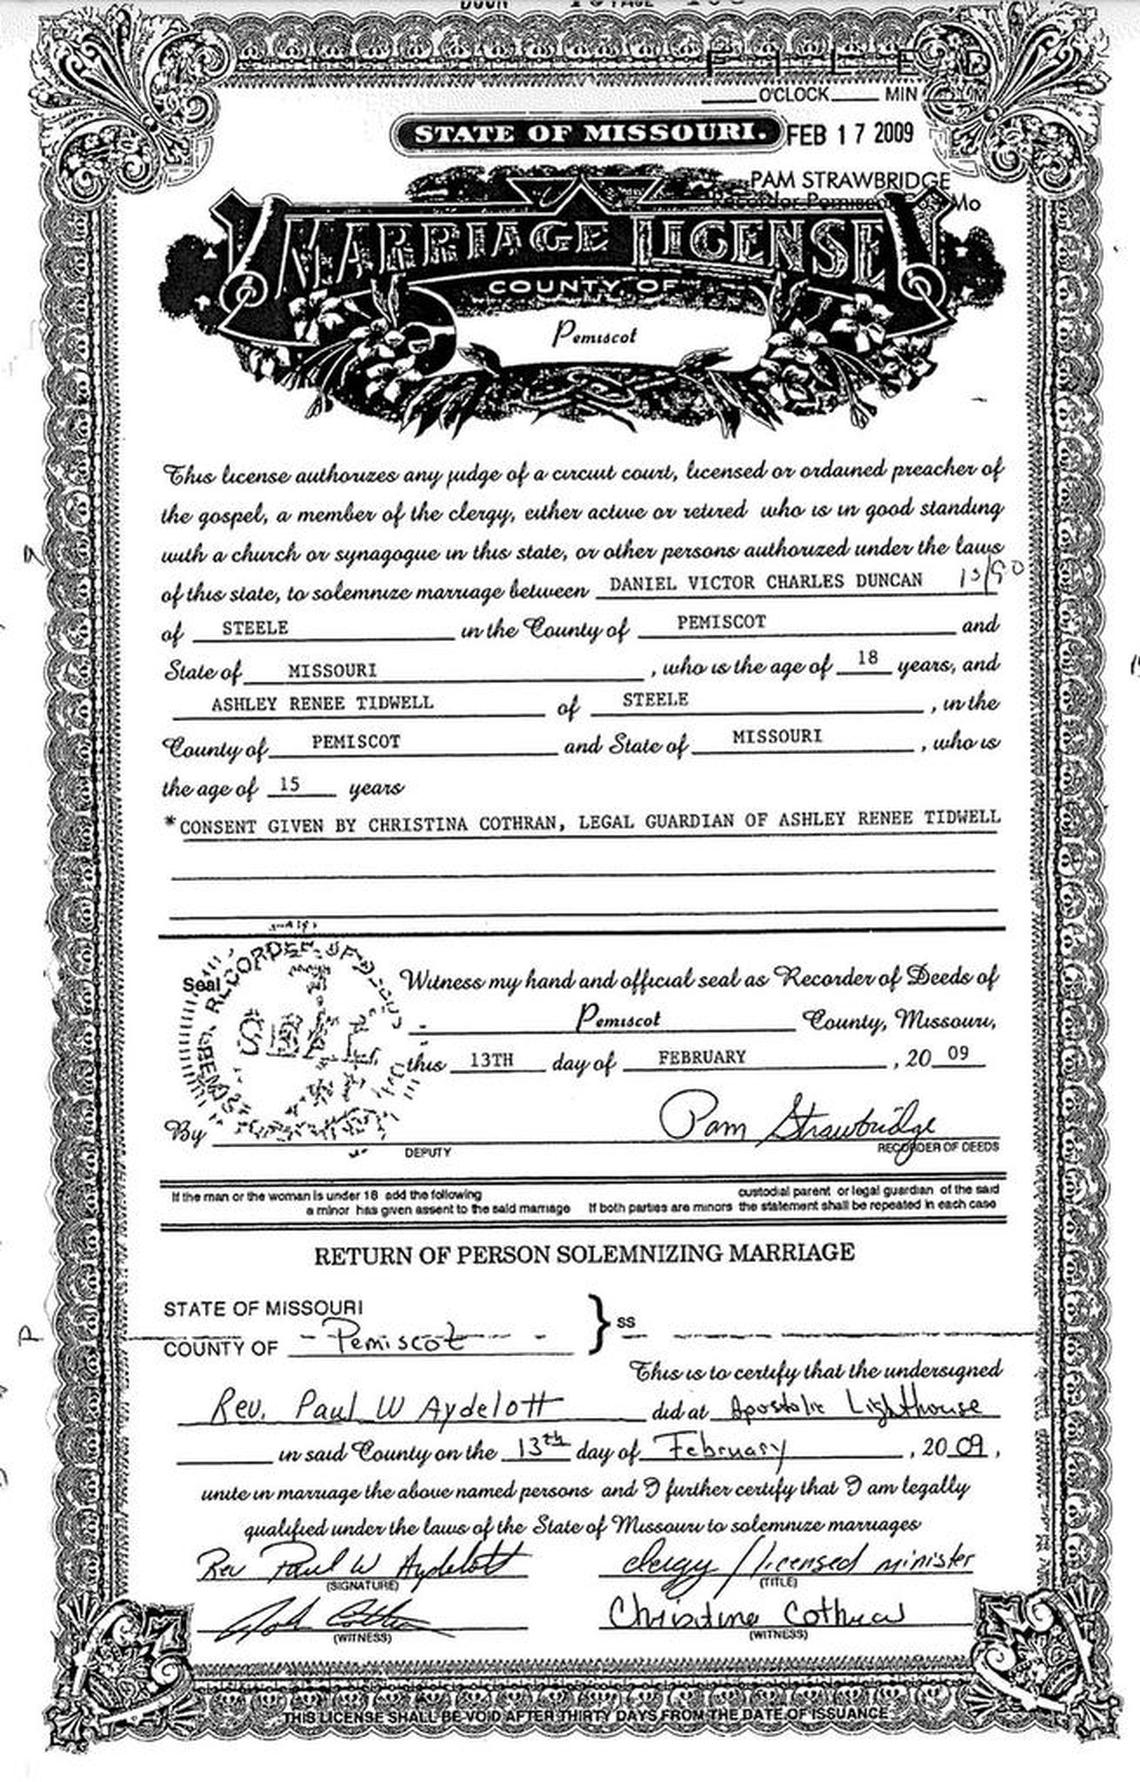 F I L E D
O'CLOCK MIN M
STATE OF MISSOURI.
FEB 17 2009
PAM STRAWBRIDGE
Recorder Pemiscot Co., Mo
MARRIAGE LICENSE
COUNTY OF
Pemiscot
This license authorizes any judge of a circuit court, licensed or ordained preacher of
the gospel, a member of the clergy, either active or retired who is in good standing
with a church or synagogue in this state, or other persons authorized under the laws
of this state, to solemnize marriage between DANIEL VICTOR CHARLES DUNCAN
of STEELE in the County of PEMISCOT and
State of MISSOURI , who is the age of 18 years, and
ASHLEY RENEE TIDWELL of STEELE , in the
County of PEMISCOT and State of MISSOURI , who is
the age of 15 years
*CONSENT GIVEN BY CHRISTINA COTHRAN, LEGAL GUARDIAN OF ASHLEY RENEE TIDWELL
Seal
RECORDER OF
SEAL
Witness my hand and official seal as Recorder of Deeds of
Pemiscot County, Missouri,
this 13TH day of FEBRUARY , 20 09
By Pam Strawbridge
DEPUTY RECORDER OF DEEDS
If the man or the woman is under 18 add the following custodial parent or legal guardian of the said
a minor has given assent to the said marriage If both parties are minors the statement shall be repeated in each case
RETURN OF PERSON SOLEMNIZING MARRIAGE
STATE OF MISSOURI
} ss
COUNTY OF - Pemiscot -
This is to certify that the undersigned
Rev. Paul W Aydelott did at Apostolic Lighthouse
in said County on the 13th day of February , 20 09 ,
unite in marriage the above named persons and I further certify that I am legally
qualified under the laws of the State of Missouri to solemnize marriages
Rev Paul W Aydelott clergy / licensed minister
(SIGNATURE) (TITLE)
Christina Cothran
(WITNESS) (WITNESS)
THIS LICENSE SHALL BE VOID AFTER THIRTY DAYS FROM THE DATE OF ISSUANCE